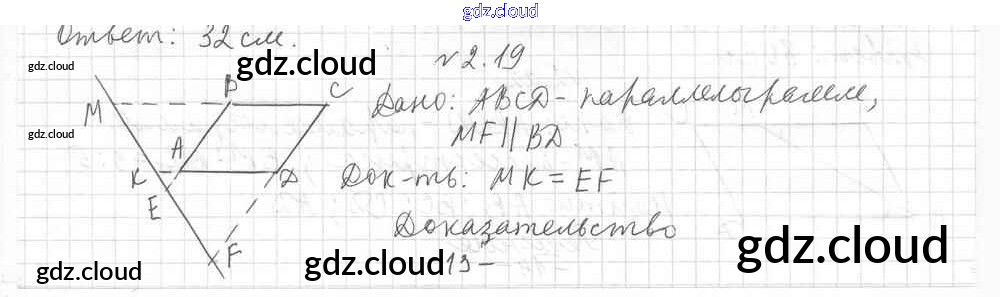 gdz.cloud
Ответ: 32 см.
gdz.cloud
gdz.cloud
№ 2.19
M B C
Дано: ABCD - параллелограмм,
gdz.cloud
MF || BD.
A
K D
Док-ть: MK = EF
E
Доказательство
F
gdz.cloud
gdz.cloud
13 -
gdz.cloud